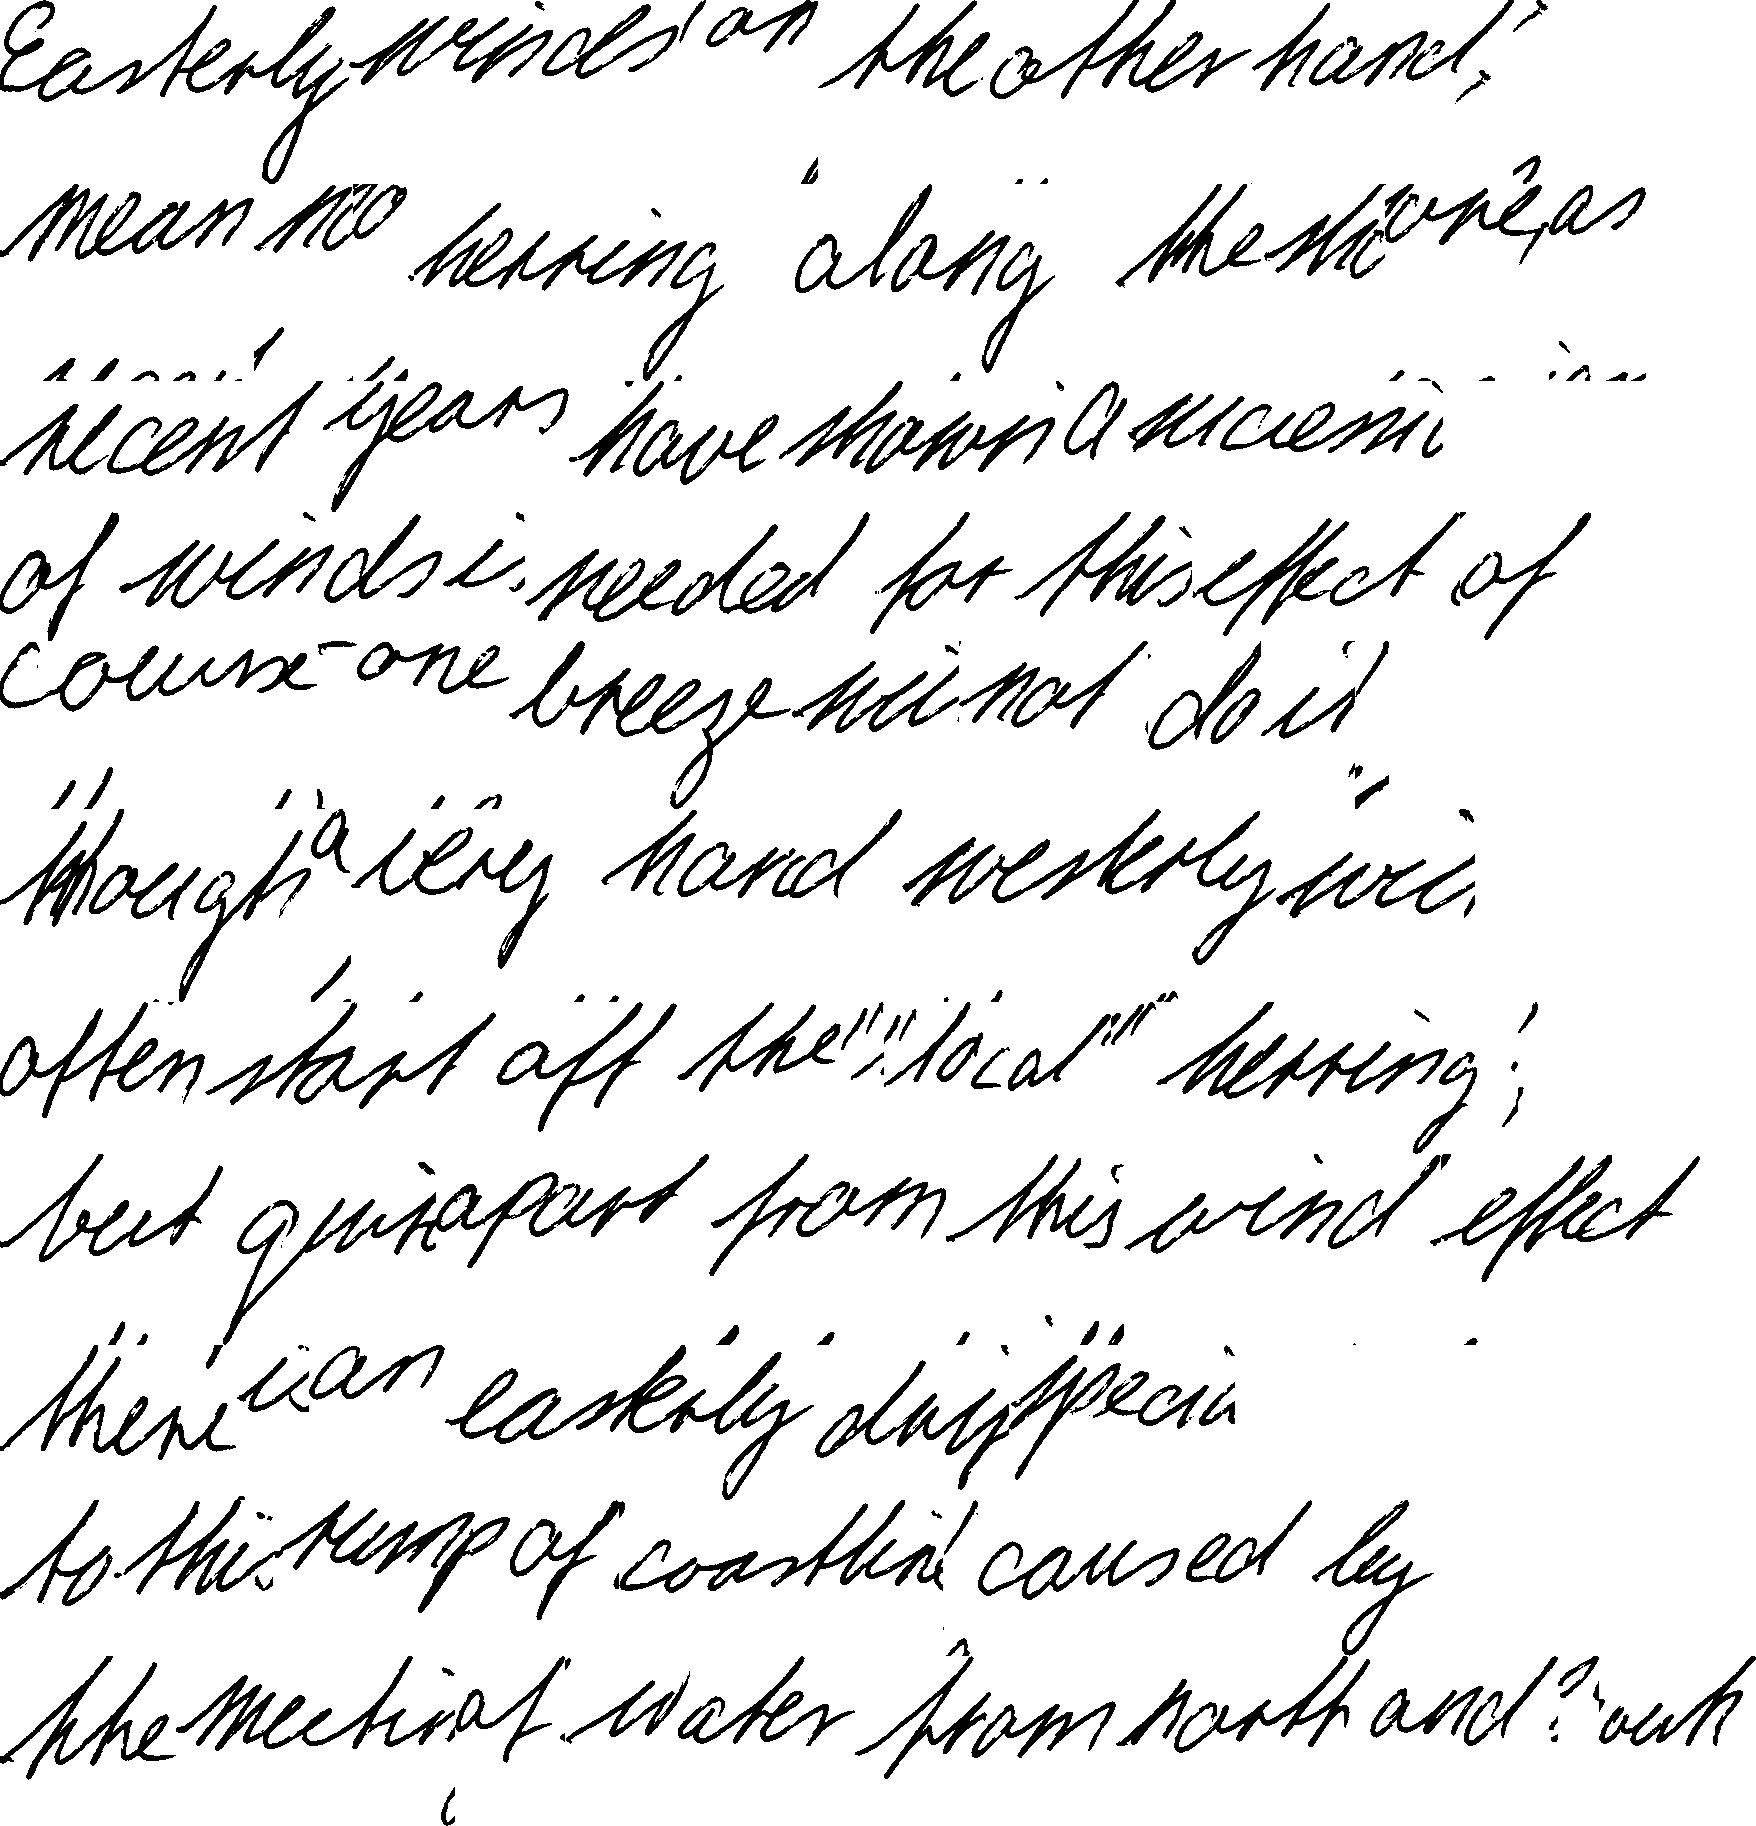 Easterly winds on the other hand,
mean no herring along the shore, as
recent years have shown A
of winds is needed for this effect of
course - one breeze will not do it
though a very hard westerly will
often start off the "local" herring;
but quite apart from this wind effect
there is an easterly
to this rump of coastline caused by
the meeting of water from north and south